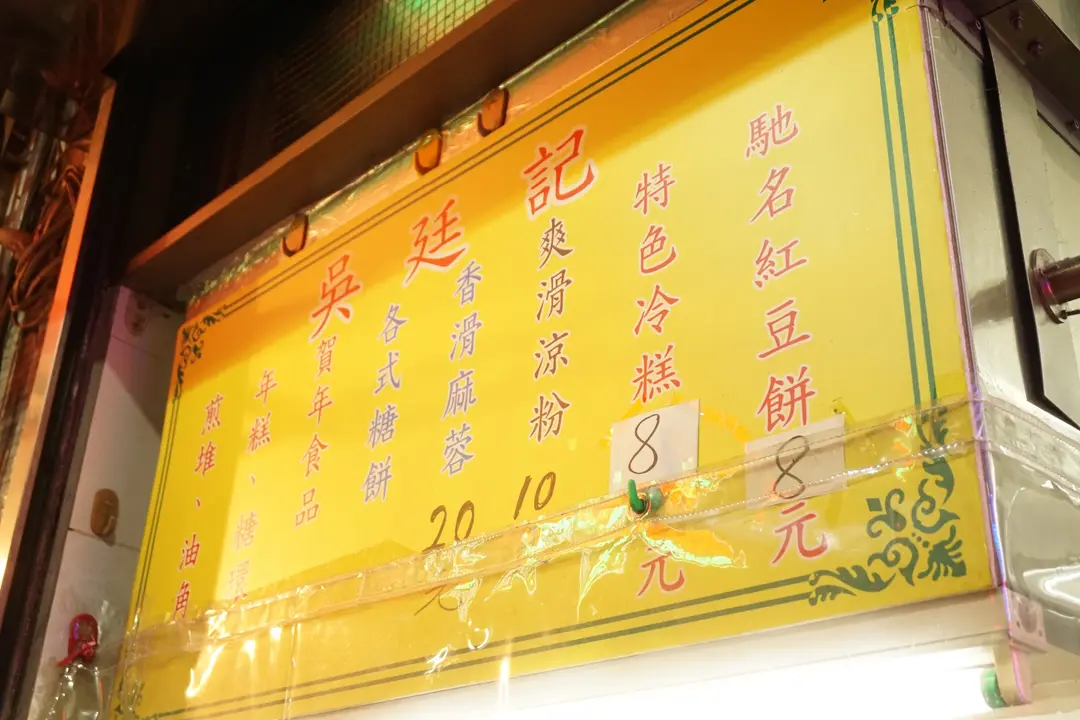 吳廷記
馳名紅豆餅8元
特色冷糕8元
爽滑涼粉10
香滑麻蓉20元
各式糖餅
賀年食品
年糕、糖環
煎堆、油角